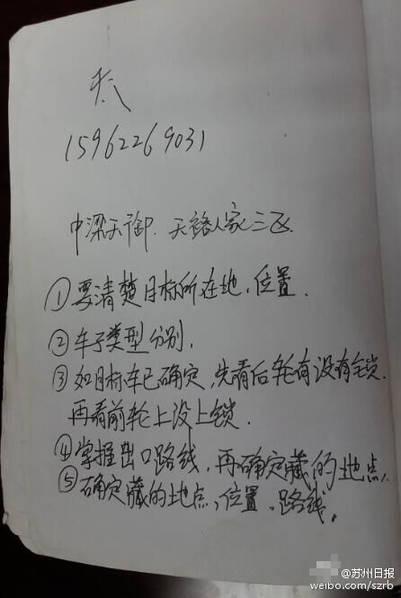 15962269031
中梁天御. 天裕人家三区
①要清楚目标所在地,位置.
②车子类型分别,
③如目标车已确定,先看后轮有没有锁.
再看前轮上没上锁.
④掌握出口路线,再确定藏的地点.
⑤确定藏的地点,位置、路线。
@苏州日报
weibo.com/szrb